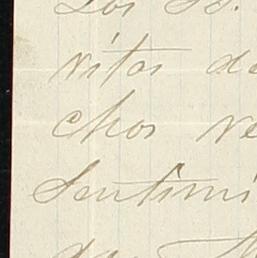 Los B.
vitos de
chos ve
Sentimi